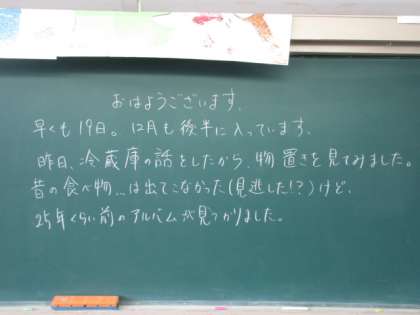 おはようございます。
早くも19日。12月も後半に入っています。
昨日、冷蔵庫の話をしたから、物置きを見てみました。
昔の食べ物…は出てこなかった(見逃した!?)けど、
25年くらい前のアルバムが見つかりました。